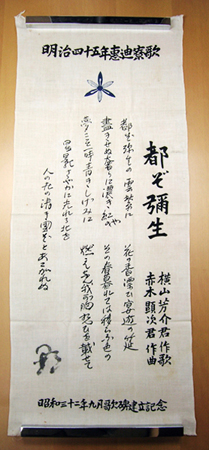 明治四十五年恵迪寮歌
都ぞ彌生
横山芳介君作歌
赤木顕次君作曲
都ぞ弥生の雲紫に 花の香漂ふ宴遊の筵
盡きせぬ奢りに濃き紅や その春暮れては移らふ色の
夢こそ一時青きしげみに 燃えなん我胸想ひを載せて
星影さやかに光れる北を
人の世の清き國ぞとあこがれぬ
昭和三十二年九月歌碑建立記念